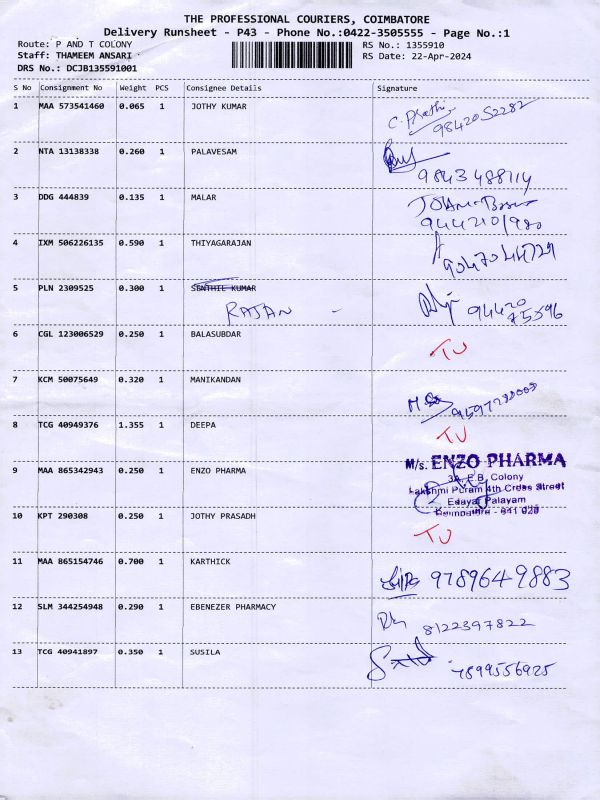 THE PROFESSIONAL COURIERS, COIMBATORE
Delivery Runsheet - P43 - Phone No.:0422-3505555 - Page No.:1
Route: P AND T COLONY RS No.: 1355910
Staff: THAMEEM ANSARI RS Date: 22-Apr-2024
DRS No.: DCJB135591001
S No Consignment No Weight PCS Consignee Details Signature
1 MAA 573541460 0.065 1 JOTHY KUMAR
9842052282
2 NTA 13138338 0.260 1 PALAVESAM
9843488114
3 DDG 444839 0.135 1 MALAR
4 IXM 506226135 0.590 1 THIYAGARAJAN
5 PLN 2309525 0.300 1 SENTHIL KUMAR
RAJAN - 94420
75596
6 CGL 123006529 0.250 1 BALASUBDAR
TU
7 KCM 50075649 0.320 1 MANIKANDAN
8 TCG 40949376 1.355 1 DEEPA
TU
M/s. ENZO PHARMA
9 MAA 865342943 0.250 1 ENZO PHARMA
E.B. Colony
Lakshmi Puram 4th Cross Street
Edayar Palayam
Coimbatore - 641 025
10 KPT 290308 0.250 1 JOTHY PRASADH
TU
11 MAA 865154746 0.700 1 KARTHICK
9789649883
12 SLM 344254948 0.290 1 EBENEZER PHARMACY
8122397822
13 TCG 40941897 0.350 1 SUSILA
7899556925